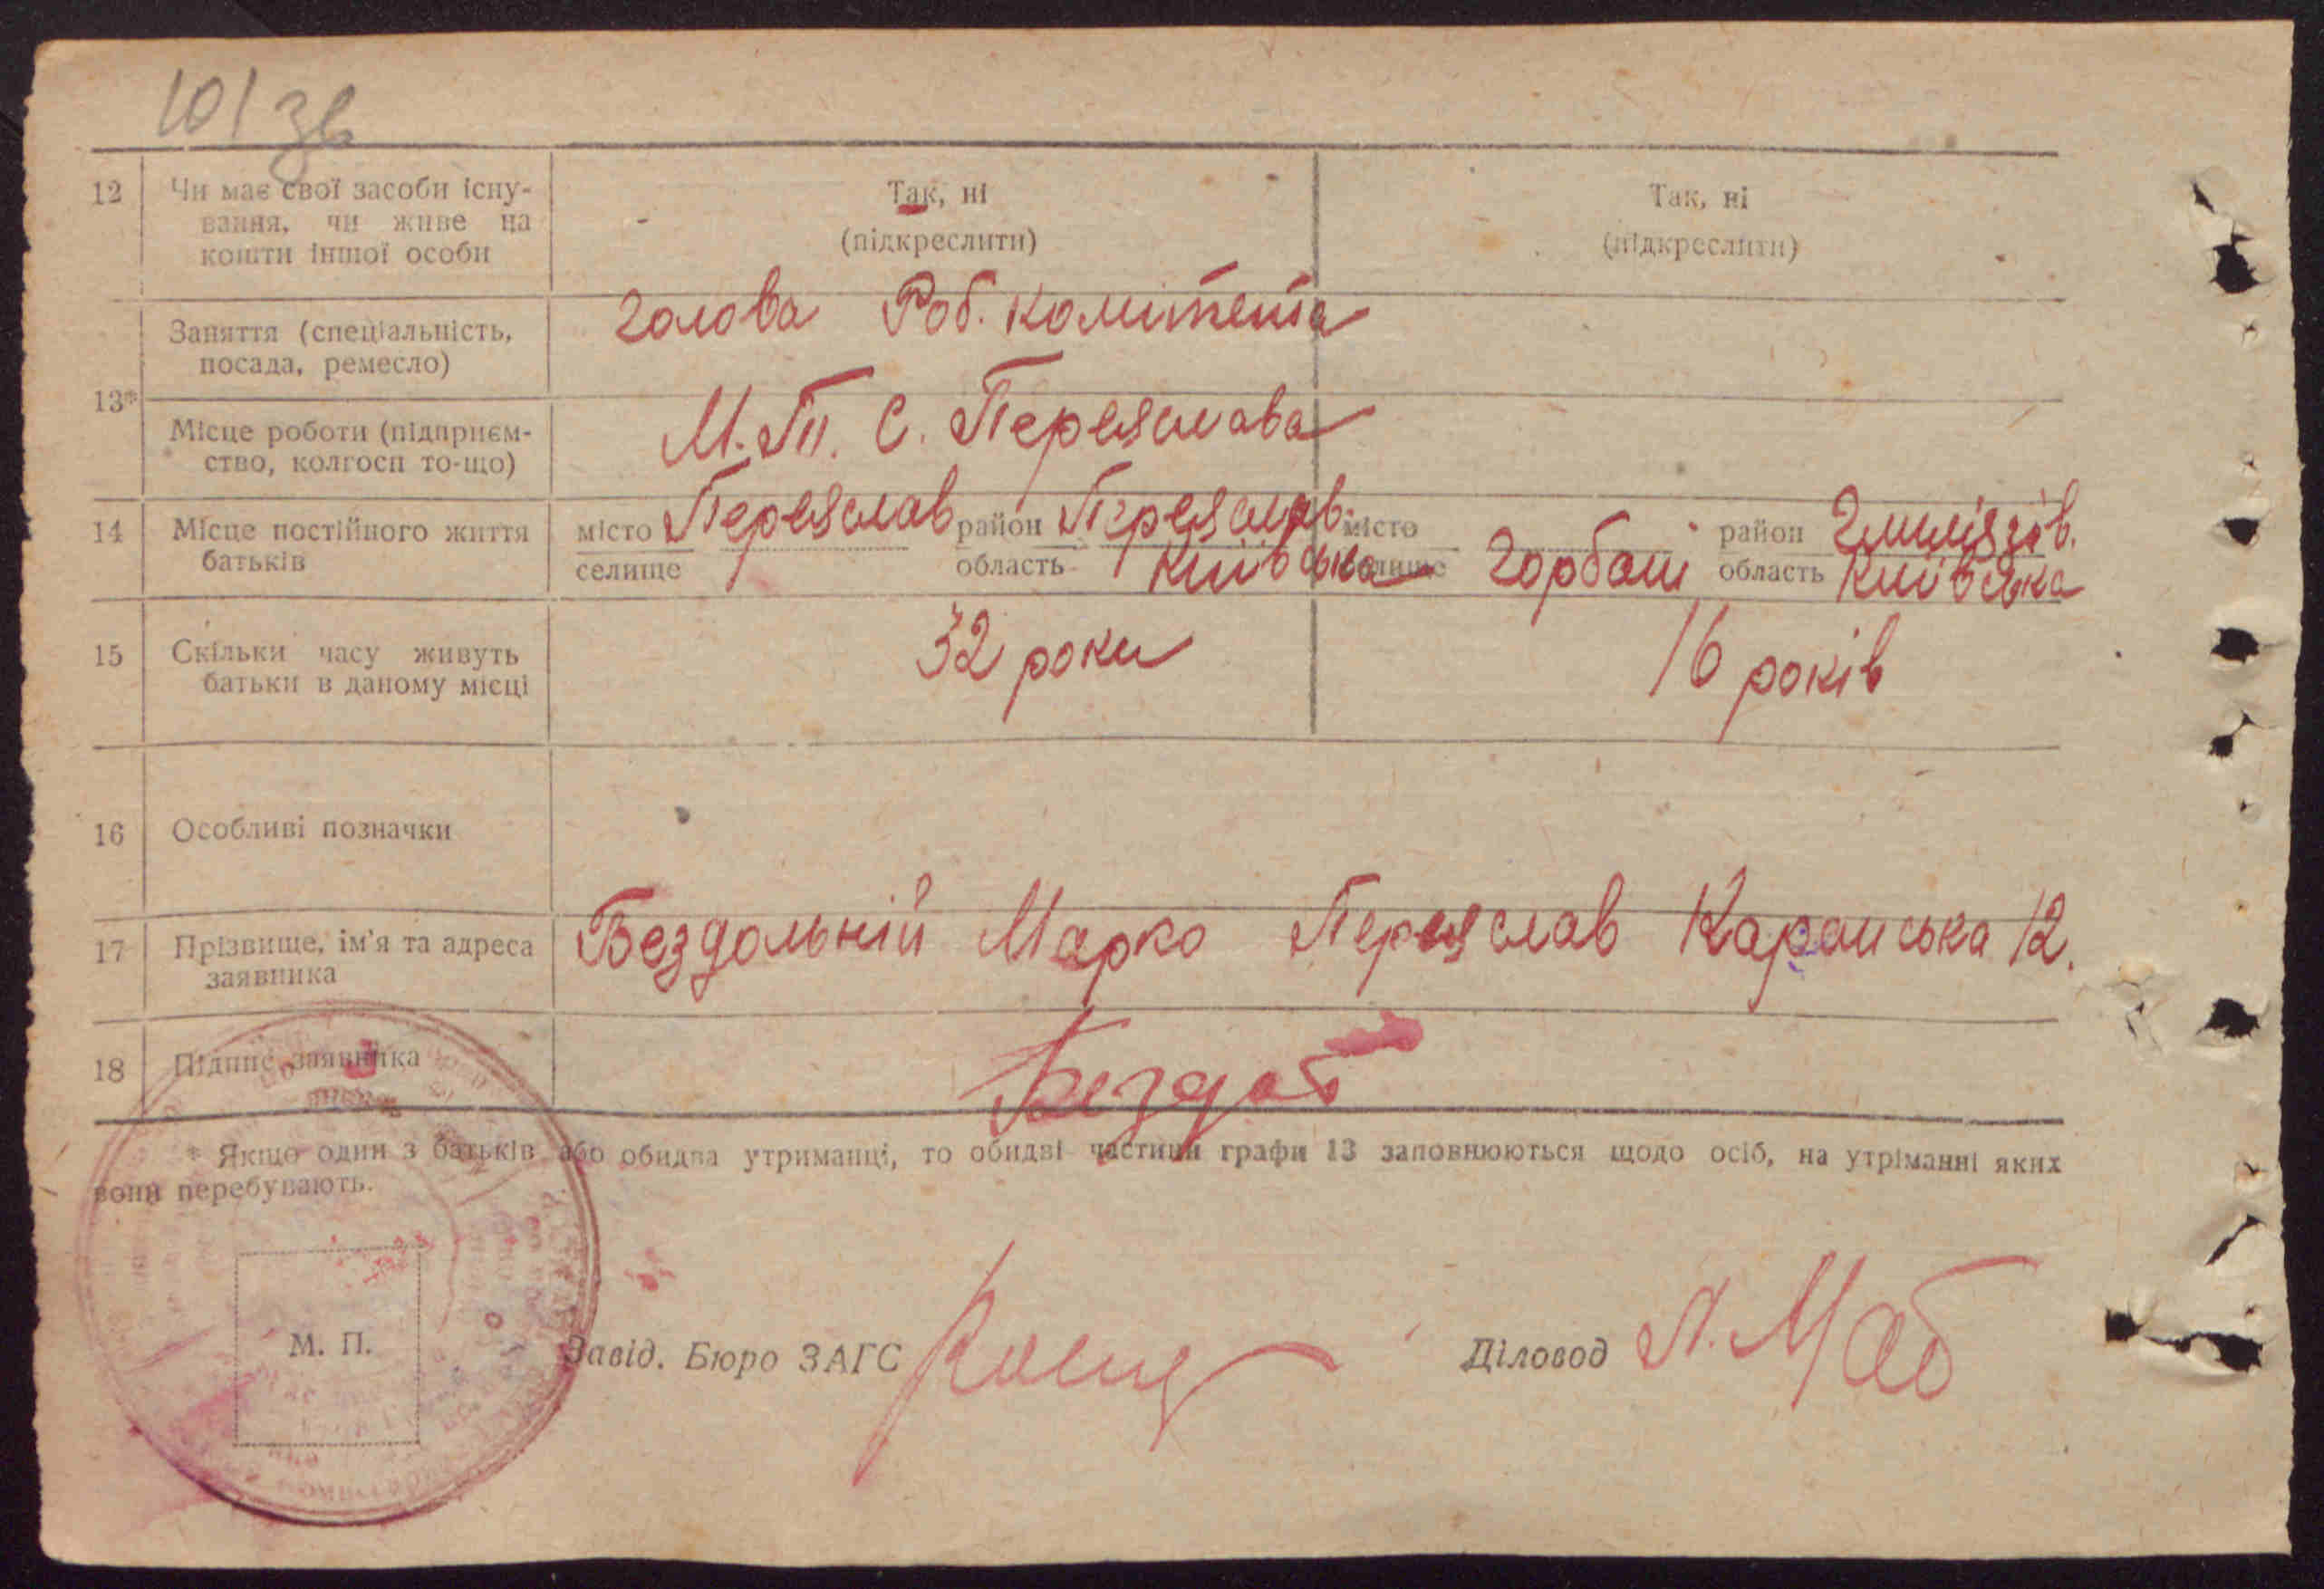 101 зв
12 Чи має свої засоби існу- Так, ні Так, ні
вання, чи живе на (підкреслити) (підкреслити)
кошти іншої особи
13* Заняття (спеціальність, голова Роб. комітета
посада, ремесло)
Місце роботи (підприєм- М.Т. С. Переяслава
ство, колгосп то-що)
14 Місце постійного життя місто Переяслав район Переяслав. місто Горбані район Гмилязів.
батьків селище область Київська селище область Київська
15 Скільки часу живуть 32 роки 16 років
батьки в даному місці
16 Особливі позначки
17 Прізвище, ім'я та адреса Бездольній Марко Переяслав Каранська 12.
заявника
18 Підпис заявника Бездол
* Якщо один з батьків або обидва утриманці, то обидві частини графи 13 заповнюються щодо осіб, на утріманні яких
вони перебувають.
М. П. Завід. Бюро ЗАГС Діловод